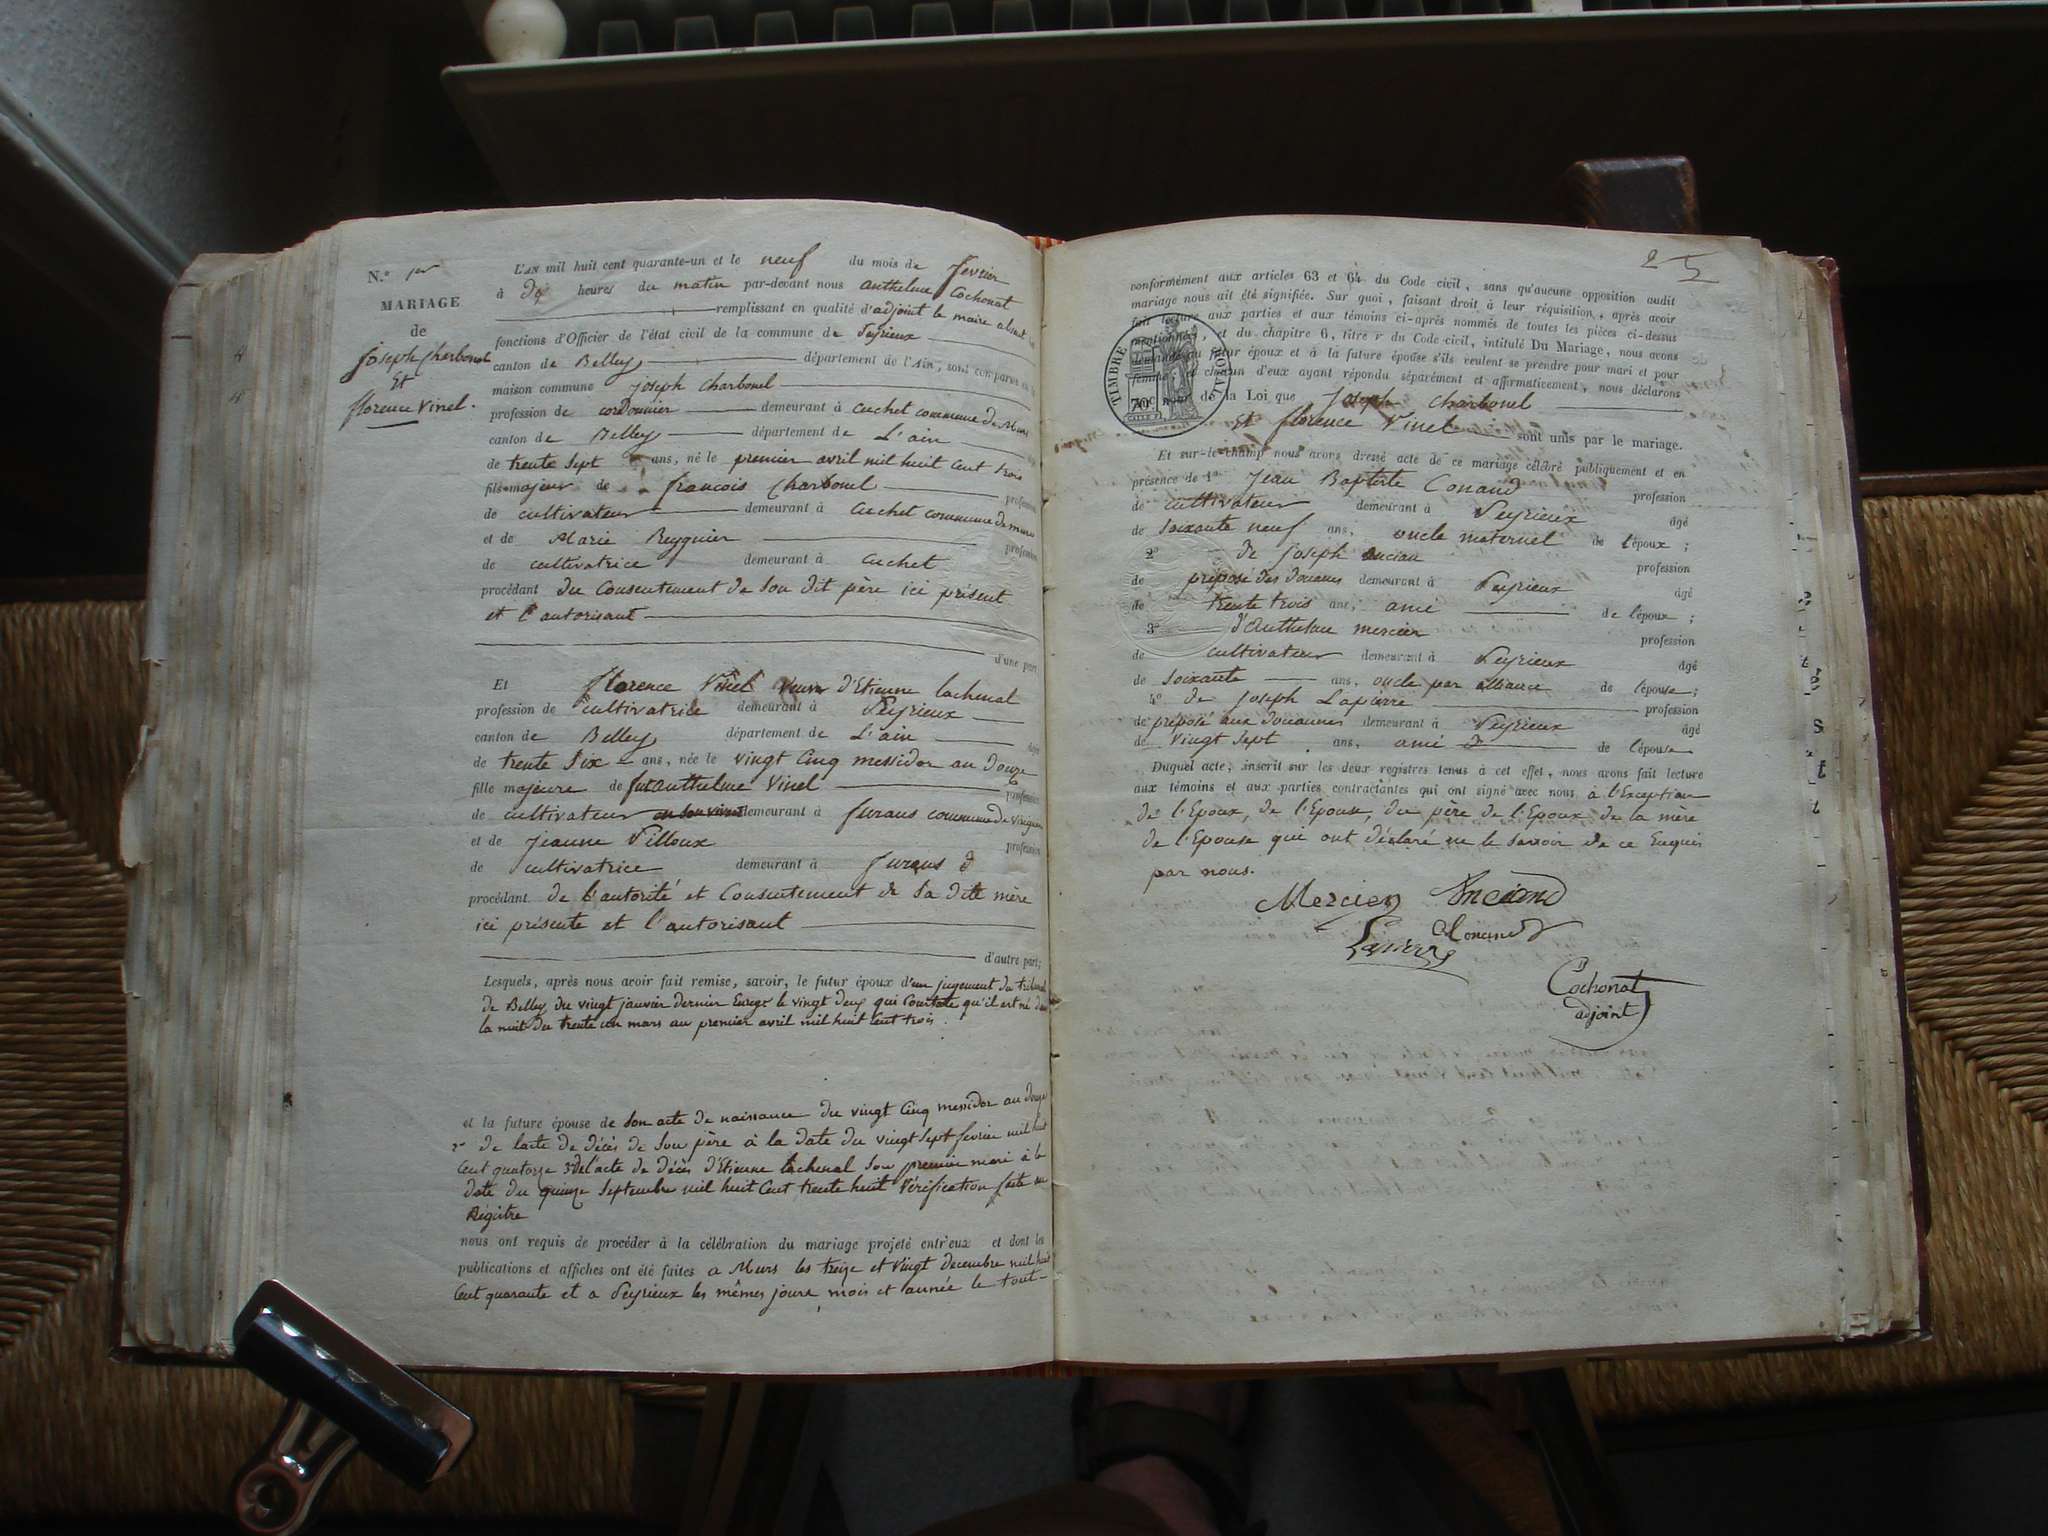 N.º 1er
MARIAGE
de
Joseph Charbonel
Et
florence Vinel.
L'AN mil huit cent quarante-un et le neuf du mois de fevrier
à dix heures du matin par-devant nous anthelme Cochonat
remplissant en qualité d'adjoint le maire absent les
fonctions d'Officier de l'état civil de la commune de Peyrieux
canton de Belley département de l'Ain, sont comparus en la
maison commune joseph Charbonel
profession de cordonnier demeurant à cuchet commune de Murs
canton de Belley département de L'ain
de trente Sept ans, né le premier avril mil huit Cent trois
fils majeur de françois Charbonel profession
de cultivateur demeurant à cuchet commune de murs
et de Marie Reygnier profession
de cultivatrice demeurant à cuchet
procédant du Consentement de Son dit père ici présent
et l'autorisant
d'une part
Et florence Vinel Veuve d'Etienne lachenal
profession de cultivatrice demeurant à Peyrieux
canton de Belley département de L'ain âgée
de trente Six ans, née le vingt Cinq messidor an douze
fille majeure de feu anthelme Vinel profession
de cultivateur en son vivant demeurant à furans commune de Virignin
et de Jeanne Pilloux profession
de cultivatrice demeurant à furans
procédant de l'autorité et Consentement de Sa dite mère
ici présente et l'autorisant
d'autre part;
Lesquels, après nous avoir fait remise, savoir, le futur époux d'un jugement du tribunal
de Belley du vingt janvier dernier Enregé le vingt deux qui Constate qu'il est né dans
la nuit du trente un mars au premier avril mil huit Cent trois.
et la future épouse de Son acte de naissance du vingt Cinq messidor an douze
2º de l'acte de décès de Son père à la date du vingt Sept fevrier mil huit
Cent quatorze 3º de l'acte de décès d'Etienne lachenal Son premier mari à la
date du quinze Septembre mil huit Cent trente huit Vérification faite au
Régitre
nous ont requis de procéder à la célébration du mariage projeté entr'eux et dont les
publications et affiches ont été faites a Murs les treize et vingt decembre mil huit
Cent quarante et a Peyrieux les mêmes jours, mois et année le tout
25
conformément aux articles 63 et 64 du Code civil, sans qu'aucune opposition audit
mariage nous ait été signifiée. Sur quoi, faisant droit à leur réquisition, après avoir
fait lecture aux parties et aux témoins ci-après nommés de toutes les pièces ci-dessus
mentionnées, et du chapitre 6, titre v du Code civil, intitulé Du Mariage, nous avons
demandé au futur époux et à la future épouse s'ils veulent se prendre pour mari et pour
femme; et chacun d'eux ayant répondu séparément et affirmativement, nous déclarons
TIMBRE ROYAL
70
au nom de la Loi que Joseph Charbonel
Et florence Vinel sont unis par le mariage.
Et sur-le-champ nous avons dressé acte de ce mariage célébré publiquement et en
présence de 1º Jean Baptiste Conand profession
de cultivateur demeurant à Peyrieux âgé
de Soixante neuf ans, oncle maternel de l'époux;
2º de joseph anciau profession
de préposé des douanes demeurant à Peyrieux âgé
de trente trois ans, ami de l'époux;
3º d'Anthelme mercier profession
de cultivateur demeurant à Peyrieux âgé
de Soixante ans, oncle par alliance de l'épouse;
4º de Joseph Lapierre profession
de préposé aux douannes demeurant à Peyrieux âgé
de Vingt Sept ans, ami de l'épouse
Duquel acte, inscrit sur les deux registres tenus à cet effet, nous avons fait lecture
aux témoins et aux parties contractantes qui ont signé avec nous à l'Exception
de l'Epoux, de l'Epouse, du père de l'Epoux de la mère
de l'Epouse qui ont déclaré ne le Savoir de ce Enquis
par nous.
Mercier
Conand
Cochonat
adjoint